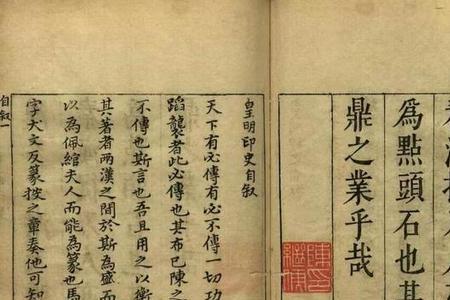 為點頭石也其
鼎之業乎哉
皇明印史自叙
天下有必傳有必不傳一切功
蹈襲者此必傳也其布已陳之
不傳也斯言也吾且用之以衡
其著者兩漢之間於斯為盛而
以為佩綰夫人而能為篆也馬
字犬文反篆按之章奏他可知
自叙一